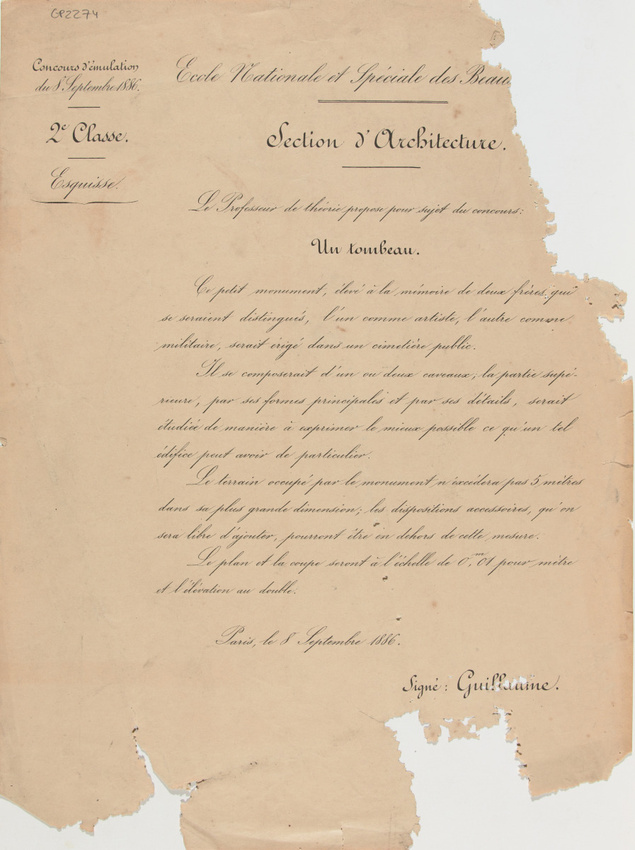 GP2274
Concours d'émulation
du 8 Septembre 1886.
2e Classe.
Esquisse.
Ecole Nationale et Spéciale des Beau
Section d'Architecture.
Le Professeur de théorie propose pour sujet du concours:
Un tombeau.
Ce petit monument, élevé à la mémoire de deux frères, qui
se seraient distingués, l'un comme artiste, l'autre comme
militaire, serait érigé dans un cimetière public.
Il se composerait d'un ou deux caveaux; la partie supé-
rieure, par ses formes principales et par ses détails, serait
étudiée de manière à exprimer le mieux possible ce qu'un tel
édifice peut avoir de particulier.
Le terrain occupé par le monument n'excédera pas 5 mètres
dans sa plus grande dimension; les dispositions accessoires, qu'on
sera libre d'ajouter, pourront être en dehors de cette mesure.
Le plan et la coupe seront à l'échelle de 0,m01 pour mètre
et l'élévation au double.
Paris, le 8 Septembre 1886.
Signé: Guillaume.